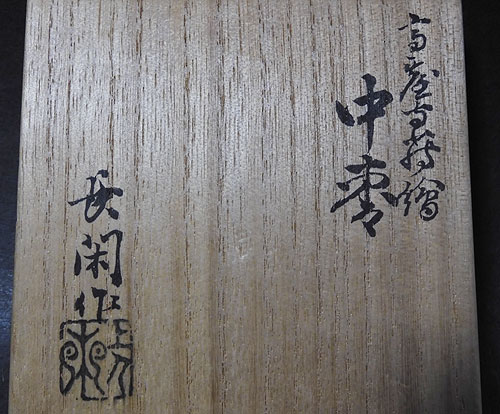 高台寺蒔繪
中棗
長閑作